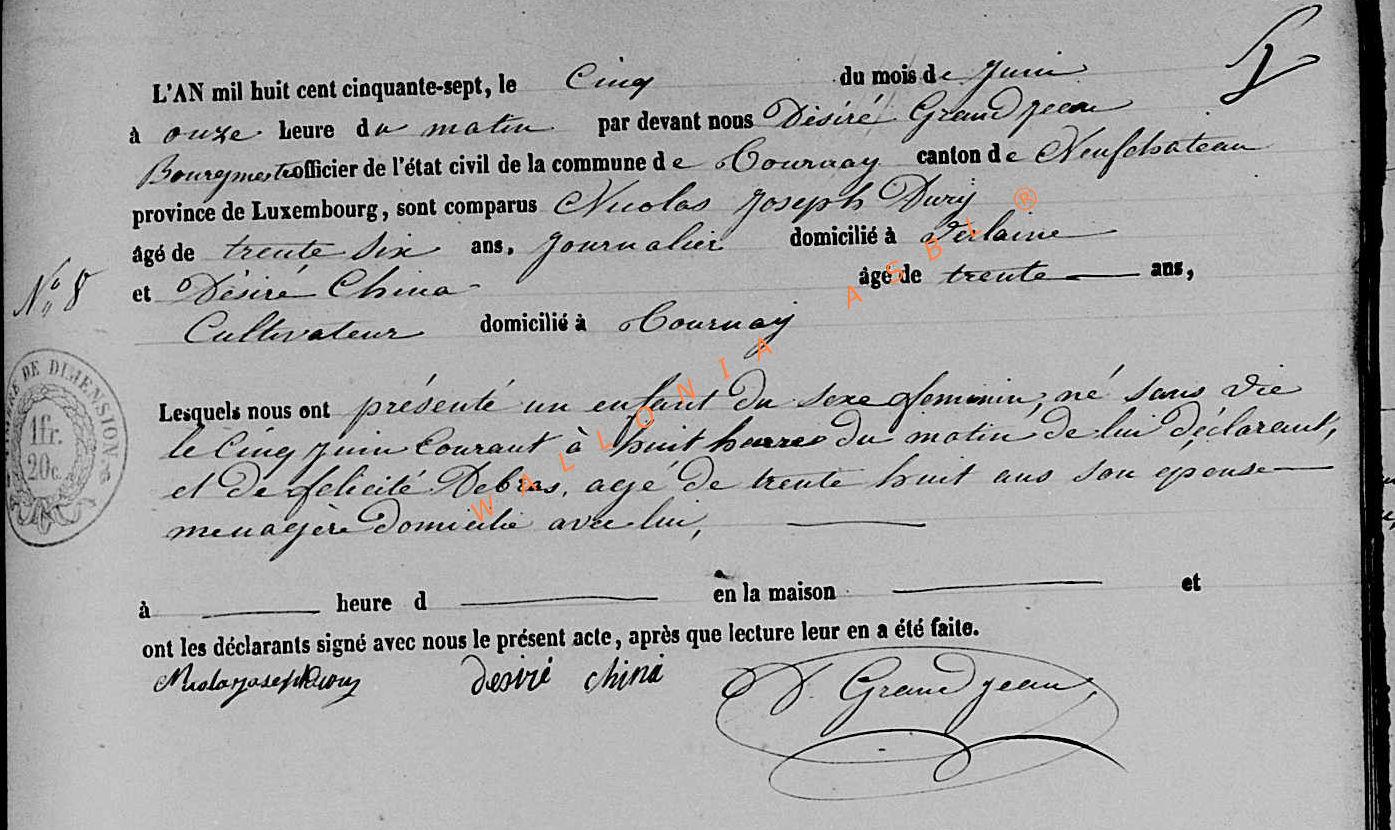 L'AN mil huit cent cinquante-sept, le Cinq du mois de Juin
à onze heure du matin par devant nous Désiré Grandjean
Bourgmestre officier de l'état civil de la commune de Tournay canton de Neufchateau
province de Luxembourg, sont comparus Nicolas Joseph Dury
âgé de trente six ans, Journalier domicilié à Verlaine
N° 8
et Désiré China âgé de trente ans,
Cultivateur domicilié à Tournay
TIMBRE DE DIMENSION
1 fr.
20 c.
Lesquels nous ont présenté un enfant du sexe féminin, né sans vie
le Cinq Juin Courant à huit heures du matin de lui déclarant,
et de félicité Debras, agé de trente huit ans son épouse
menagère domicilié avec lui,
à heure d en la maison et
ont les déclarants signé avec nous le présent acte, après que lecture leur en a été faite.
Nicolas joseph Dury desiré china D. Grandjean
WALLONIA ASBL ®